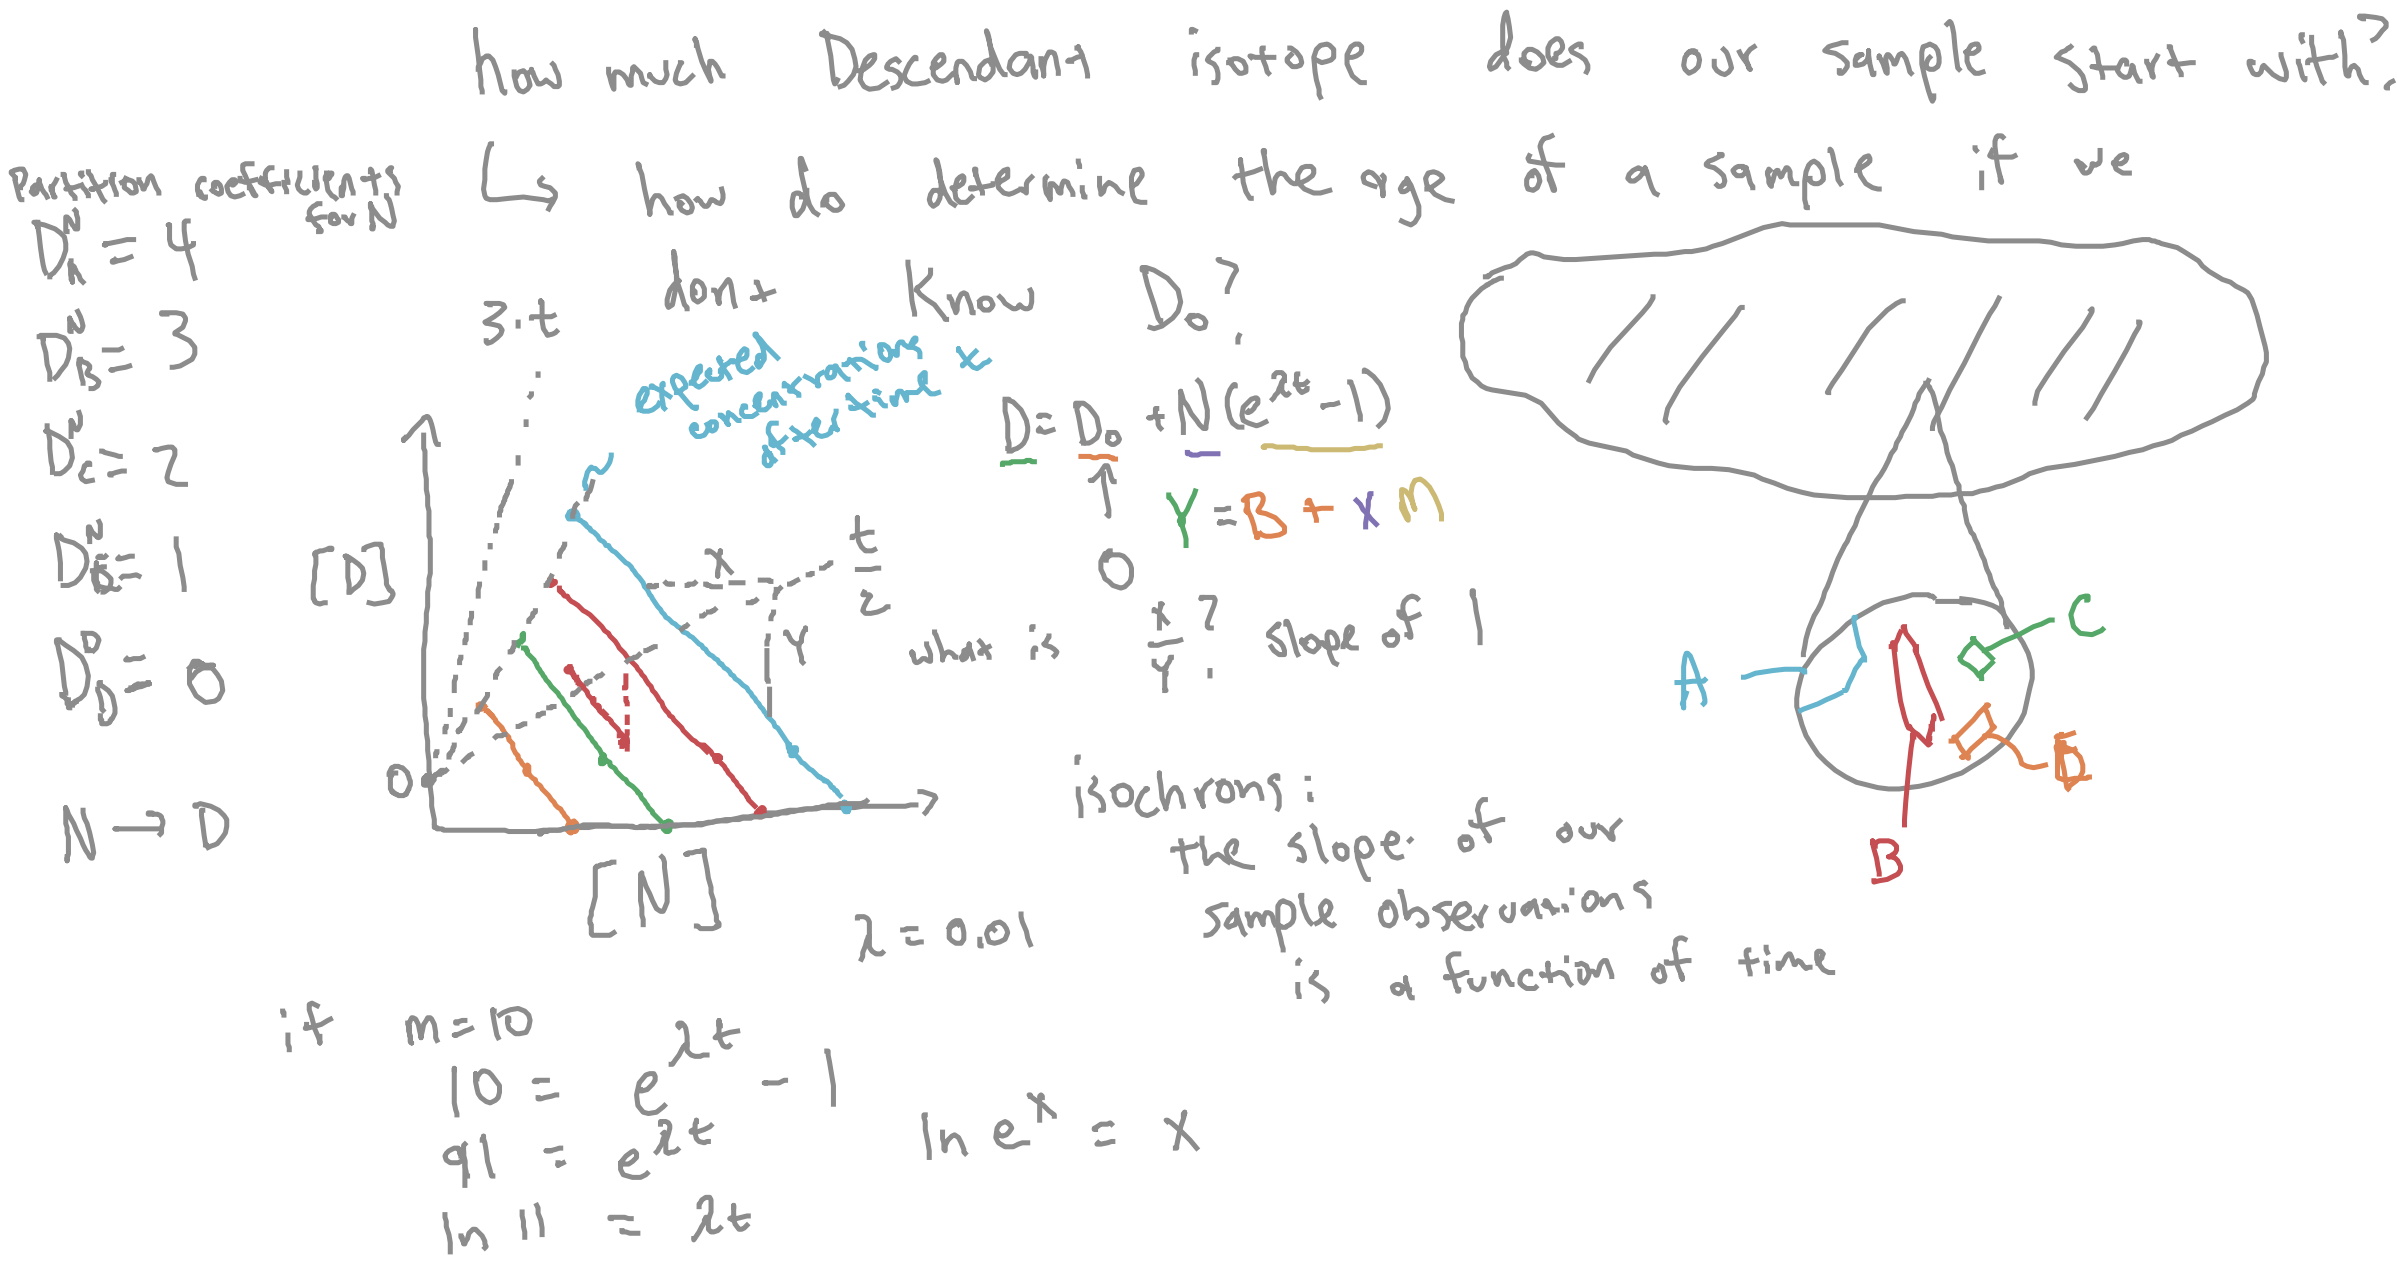 how much Descendant isotope does our sample start with?
↳ how do determine the age of a sample if we
dont know D₀?
Partition coefficients
for N
D_A^N = 4
D_B^N = 3
D_C^N = 2
D_D^N = 1
D_D^D = 0
N → D
3·t
expected
concentrations
after time t
D = D₀ + N(e^λt - 1)
Y = B + X M
0
[D]
0
[N]
X
Y
t/2
what is X/Y? slope of 1
A
B
C
D
isochrons:
the slope of our
sample observations
is a function of time
λ = 0.01
if m = 10
10 = e^λt - 1
11 = e^λt
ln e^x = x
ln 11 = λt